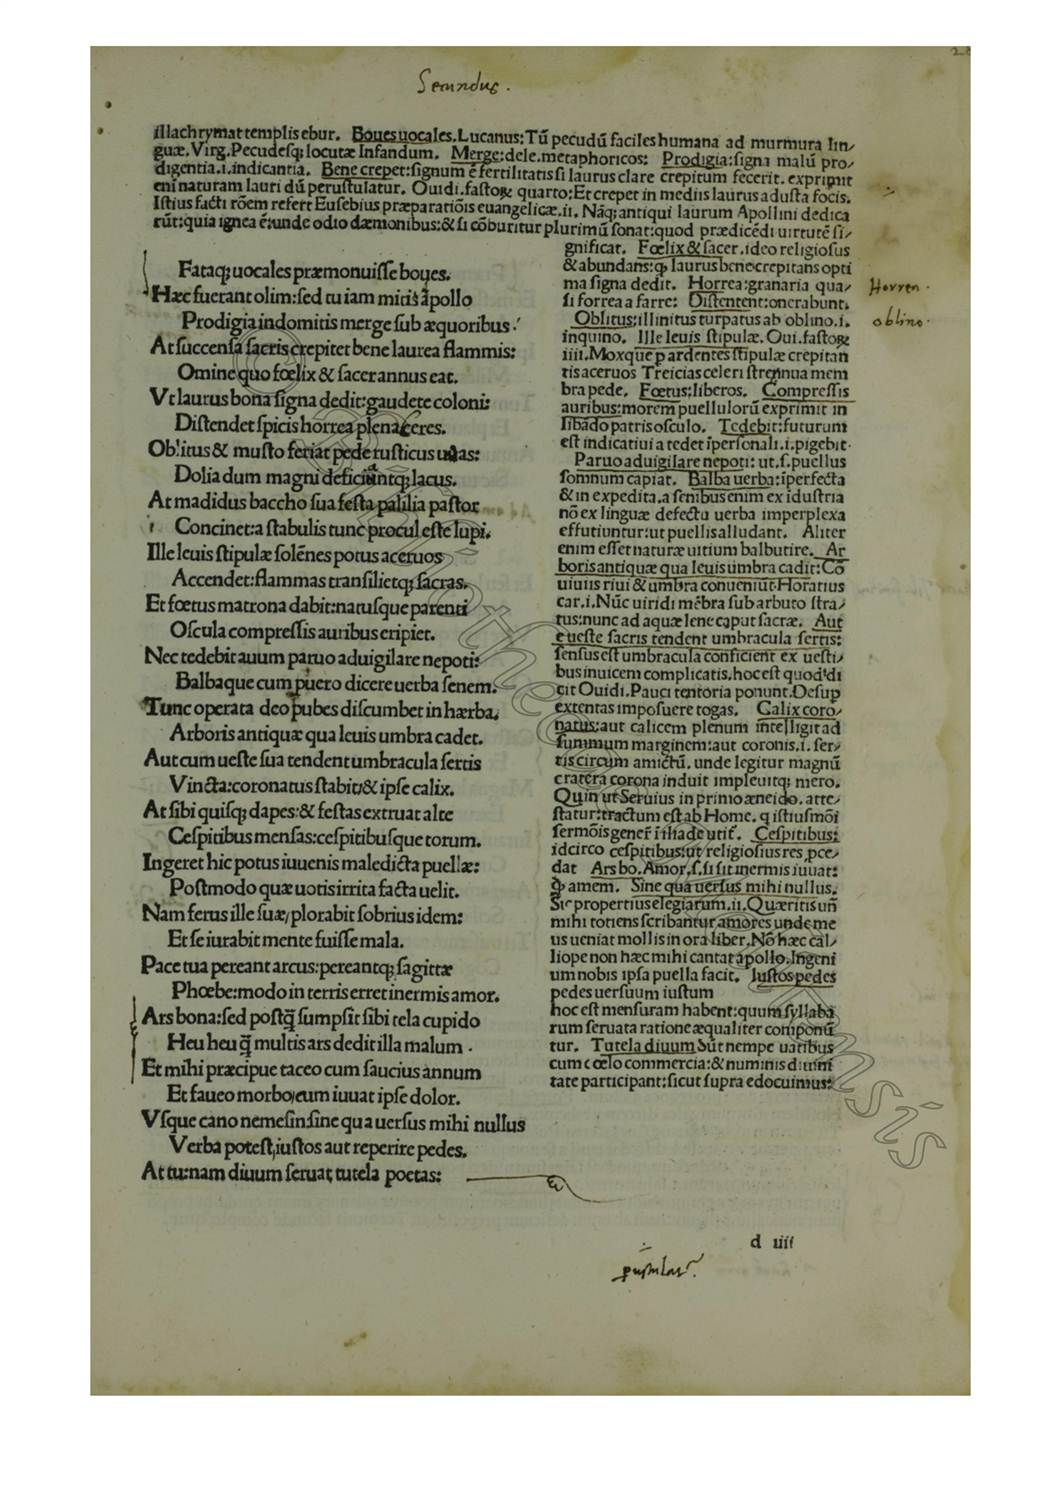 Secundus.
illachrymat templis ebur. Boues uocales. Lucanus: Tū pecudū faciles humana ad murmura lin/
guæ. Virg. Pecudesq; locutæ Infandum. Merge: dele. metaphoricos: Prodigia: signa malū pro/
digentia .i. indicantia. Bene crepet: signum ē fertilitatis si laurus clare crepitum fecerit. exprimit
eni naturam lauri dū perustulatur. Ouidi. fastoꝝ quarto: Et crepet in mediis laurus adusta focis.
Istius facti rōem refert Eusebius præparatiōis euangelicæ .ii. Nāq; antiqui laurum Apollini dedica
rūt: quia ignea ē: unde odio dæmonibus: & si cōburitur plurimū sonat: quod prædicēdi uirtutē si/
Fataq; uocales præmonuisse boues.
Hæc fuerant olim: sed tu iam mitis apollo
Prodigia indomitis merge sub æquoribus.
At succensa sacris crepitet bene laurea flammis:
Omine quo fœlix & sacer annus eat.
Vt laurus bona signa dedit: gaudete coloni:
Distendet spicis horrea plena ceres.
Oblitus & musto feriat pede rusticus uuas:
Dolia dum magni deficiuntq; lacus.
At madidus baccho sua festa palilia pastor
Concinet: a stabulis tunc procul este lupi.
Ille leuis stipulæ solēnes potus aceruos
Accendet: flammas transilietq; sacras.
Et fœtus matrona dabit: natusque parenti
Oscula compressis auribus eripiet.
Nec tedebit auum paruo aduigilare nepoti:
Balbaque cum puero dicere uerba senem.
Tunc operata deo pubes discumbet in hærba.
Arboris antiquæ qua leuis umbra cadet.
Aut cum ueste sua tendent umbracula sertis
Vincta: coronatus stabit: & ipse calix.
At sibi quisq; dapes: & festas extruat alte
Cespitibus mensas: cespitibusque torum.
Ingeret hic potus iuuenis maledicta puellæ:
Postmodo quæ uotis irrita facta uelit.
Nam ferus ille suæ, plorabit sobrius idem:
Et se iurabit mente fuisse mala.
Pace tua pereant arcus: pereantq; sagittæ
Phœbe: modo in terris erret inermis amor.
Ars bona: sed postq̄ sumpsit sibi tela cupido
Heu heu q̄ multis ars dedit illa malum.
Et mihi præcipue taceo cum saucius annum
Et faueo morbo, cum iuuat ipse dolor.
Vsque cano nemesin: sine qua uersus mihi nullus
Verba potest, iustos aut reperire pedes.
At tu: nam diuum seruat tutela poetas:
gnificat. Fœlix & sacer. ideo religiosus
& abundans: qꝫ laurus bene crepitans opti
ma signa dedit. Horrea: granaria qua/
si forrea a farre: Distentent: onerabunt.
Oblitus: illinitus turpatus ab oblino .i.
inquino. Ille leuis stipulæ. Oui. fastoꝝ
iiii. Moxque p ardentes stipulæ crepitan
tis aceruos Treicias celeri strennua mem
bra pede. Fœtus: liberos. Compressis
auribus: morem puellulorū exprimit in
libādo patris osculo. Tedebit: futurum
est indicatiui a tedet īpersonali .i. pigebit.
Paruo aduigilare nepoti: ut .s. puellus
somnum capiat. Balba uerba: īperfecta
& in expedita. a senibus enim ex idustria
nō ex linguæ defectu uerba imperplexa
effutiuntur: ut puellis alludant. Aliter
enim esset naturæ uitium balbutire. Ar
boris antiquæ qua leuis umbra cadit: Cō
uiuiis riui & umbra conueniūt. Horatius
car. i. Nūc uiridi mēbra sub arbuto stra/
tus: nunc ad aquæ lene caput sacræ. Aut
e ueste sacris tendent umbracula sertis:
sensus est umbracula conficient ex uesti/
bus inuicem complicatis. hoc est quod di
cit Ouidi. Pauci tentoria ponunt. Desup
extentas imposuere togas. Calix coro/
natus: aut calicem plenum intelligit ad
summum marginem: aut coronis .i. ser/
tis circum amictū. unde legitur magnū
cratera corona induit impleuitq; mero.
Quin ut Seruius in primo æneido. atte/
statur: tractum est ab Home. q istiusmōi
sermōis genere ī iliade utit̄. Cespitibus:
idcirco cespitibus: ut religiosius res pce/
dat Ars bo. Amor .s. si sit inermis iuuat:
qꝫ amem. Sine qua uersus mihi nullus.
Sic propertius elegiarum .ii. Quæritis un̄
mihi totiens scribantur amores unde me
us ueniat mollis in ora liber. Nō hæc cal/
liope non hæc mihi cantat apollo. Ingeni
um nobis ipsa puella facit. Iustos pedes
pedes uersuum iustum
hoc est mensuram habent: quum syllaba
rum seruata ratione æqualiter componū
tur. Tutela diuum Sūt nempe uatibus
cum cœlo commercia: & numinis diuini
tate participant: sicut supra edocuimus:
Horrea.
oblino.
d iiii